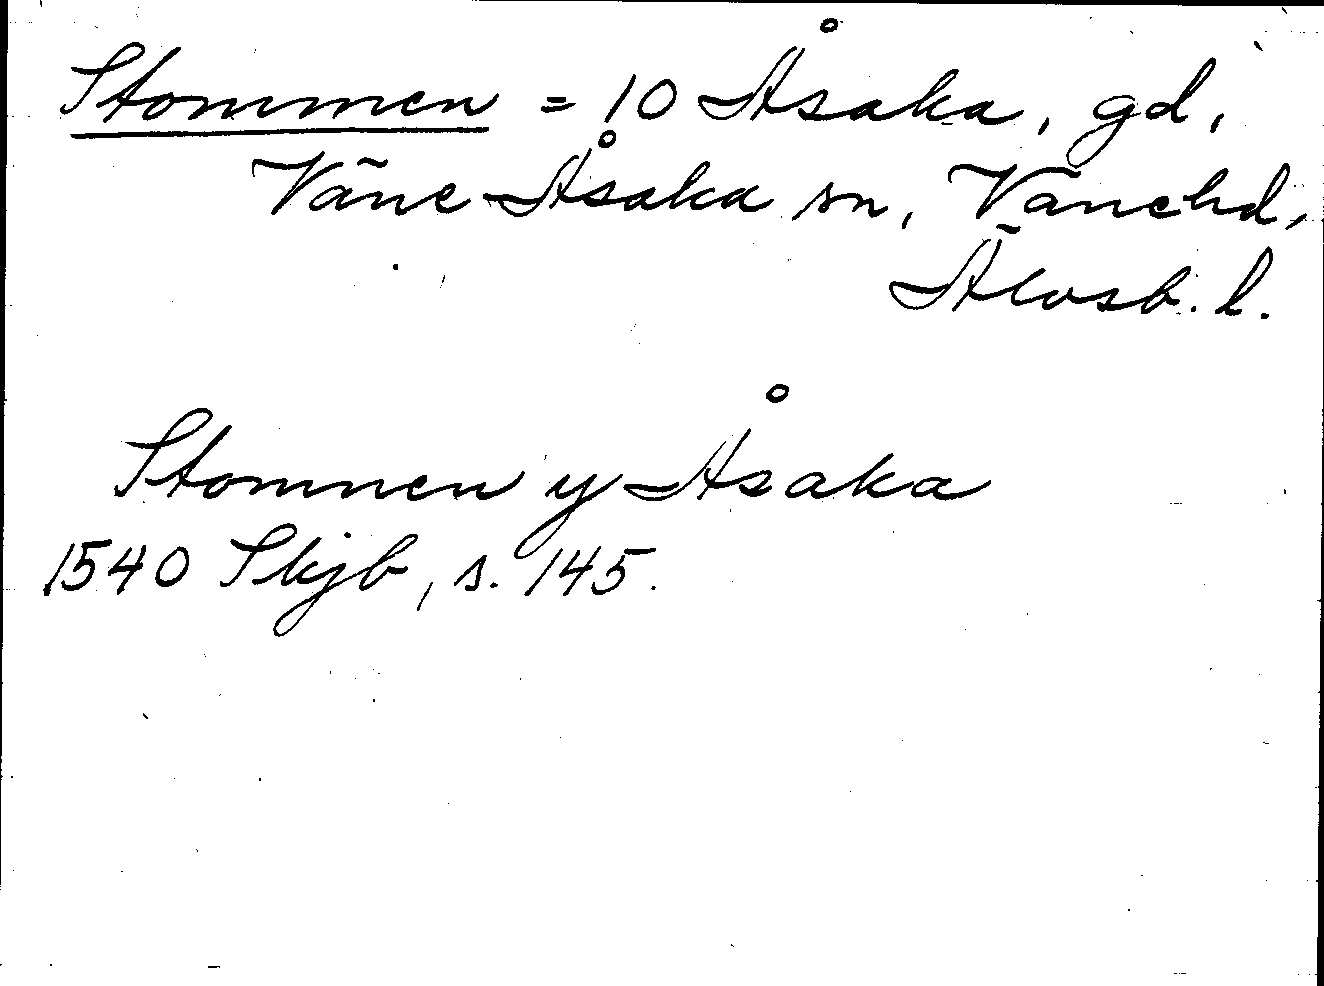 Stommen = 10 Åsaka, gd,
Väne-Åsaka sn, Vänehd,
Älvsb. l.
Stommen y Åsaka
1540 Skjb, s. 145.